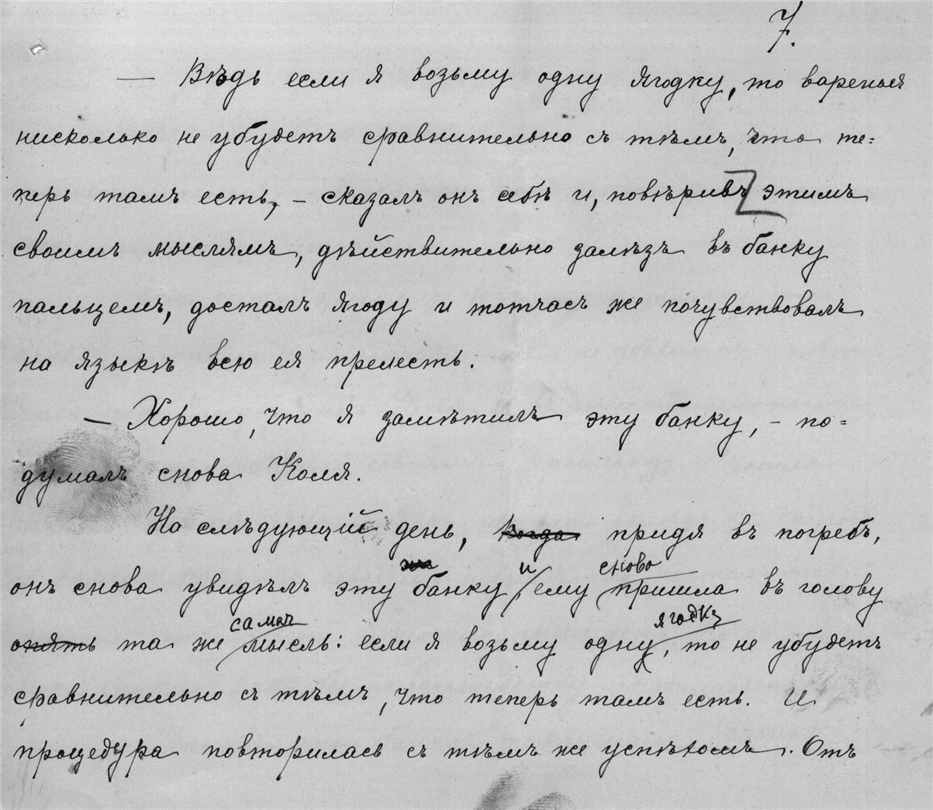 7.
— Вѣдь если я возьму одну ягодку, то варенья
нисколько не убудетъ сравнительно съ тѣмъ, что те=
перь тамъ есть, – сказалъ онъ себѣ и, повѣривъ этимъ
своимъ мыслямъ, дѣйствительно залѣзъ въ банку
пальцемъ, досталъ ягоду и тотчасъ же почувствовалъ
на языкѣ всю ея прелесть.
— Хорошо, что я замѣтилъ эту банку, – по=
думалъ снова Коля.
На слѣдующій день, когда придя въ погребъ,
онъ снова увидѣлъ эту же банку и ему снова пришла въ голову
опять та же самая мысль: если я возьму одну ягодку, то не убудетъ
сравнительно съ тѣмъ, что теперь тамъ есть. И
процедура повторилась съ тѣмъ же успѣхомъ. Отъ